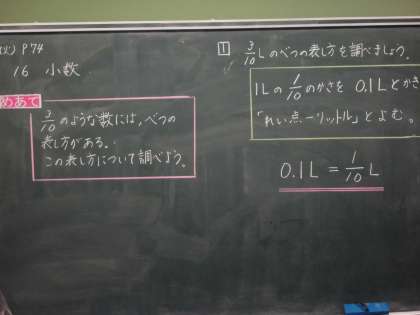 (火) P74
16 小数
めあて
3/10 のような数には、べつの
表し方がある。
この表し方について調べよう。
1 3/10 Lのべつの表し方を調べましょう。
1Lの 1/10 のかさを 0.1Lとかき
「れい点一リットル」とよむ。
0.1L = 1/10 L